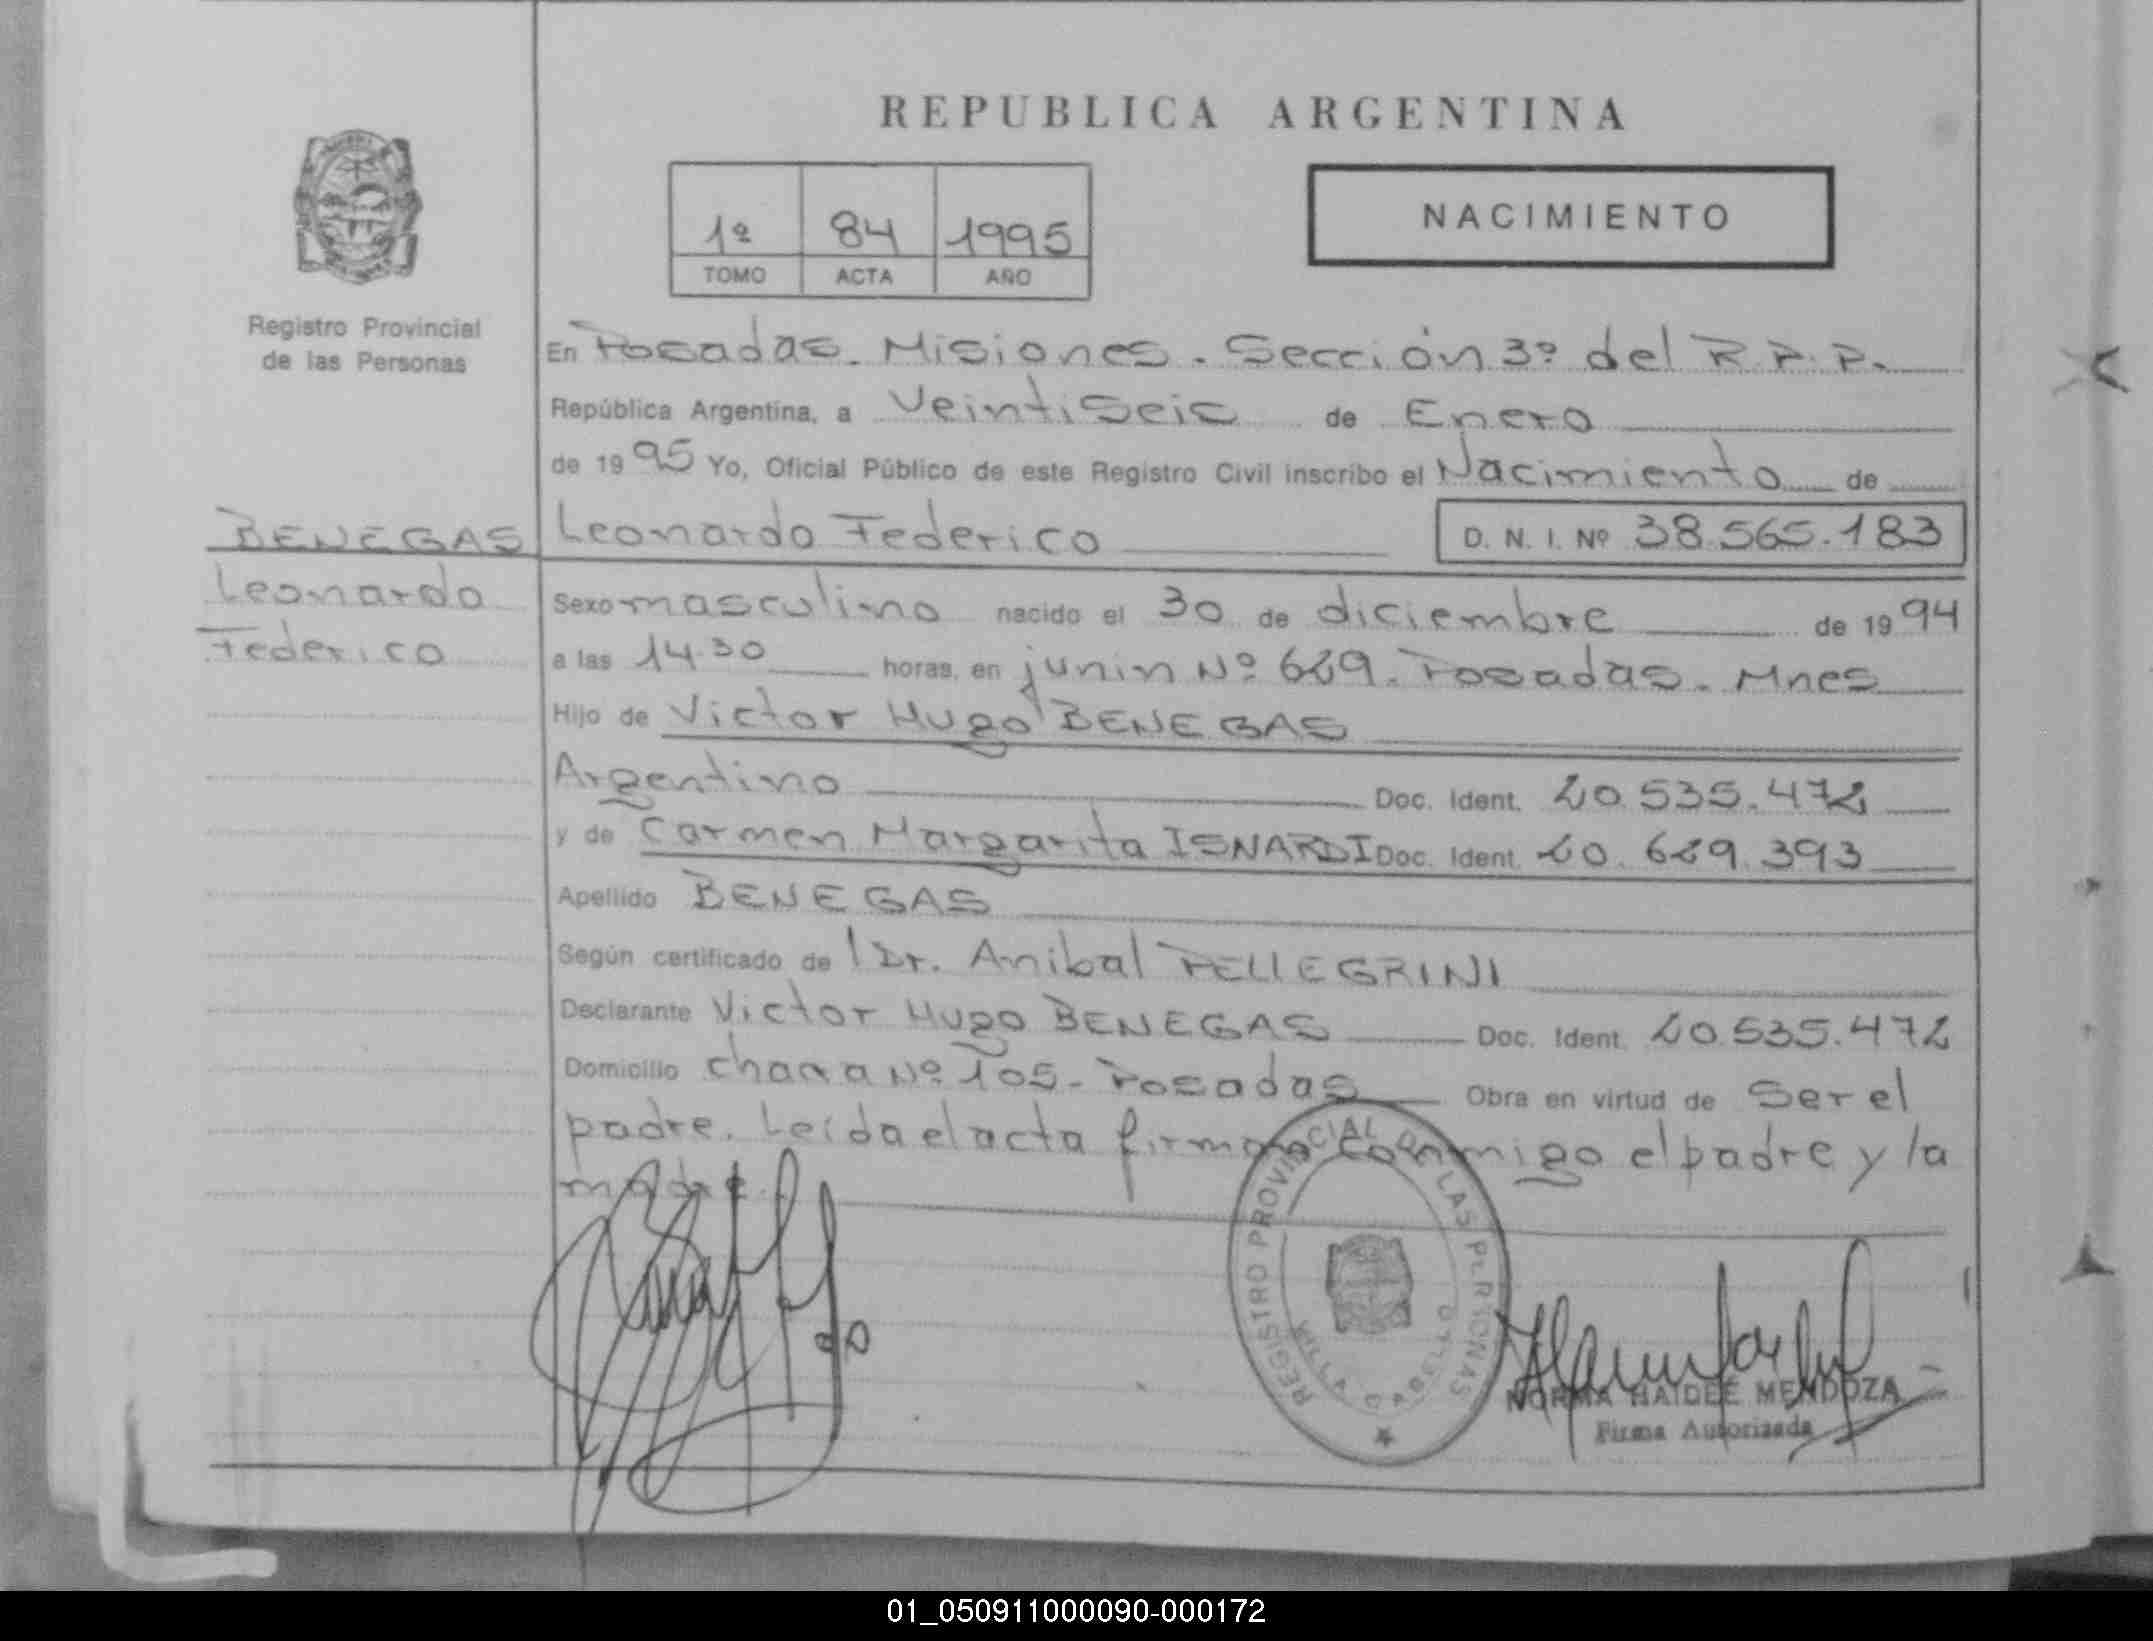 REPUBLICA ARGENTINA
1º 84 1995
TOMO ACTA AÑO
NACIMIENTO
Registro Provincial
de las Personas
En Posadas. Misiones. Sección 3º del R.P.P.
República Argentina, a Veintiseis de Enero
de 1995 Yo, Oficial Público de este Registro Civil inscribo el Nacimiento de
BENEGAS
Leonardo
Federico
Leonardo Federico D. N. I. Nº 38.565.183
Sexo masculino nacido el 30 de diciembre de 1994
a las 14.30 horas, en junin Nº 629. Posadas. Mnes
Hijo de Victor Hugo BENEGAS
Argentino Doc. Ident. 20.535.472
y de Carmen Margarita ISNARDI Doc. Ident. 20.629.393
Apellido BENEGAS
Según certificado de l Dr. Anibal PELLEGRINI
Declarante Victor Hugo BENEGAS Doc. Ident. 20.535.472
Domicilio chacra Nº 105 - Posadas Obra en virtud de Ser el
padre. Leída el acta firman conmigo el padre y la
madre.
REGISTRO PROVINCIAL DE LAS PERSONAS
VILLA CABELLO
NORMA HAIDEE MENDOZA
Firma Autorizada
01_050911000090-000172